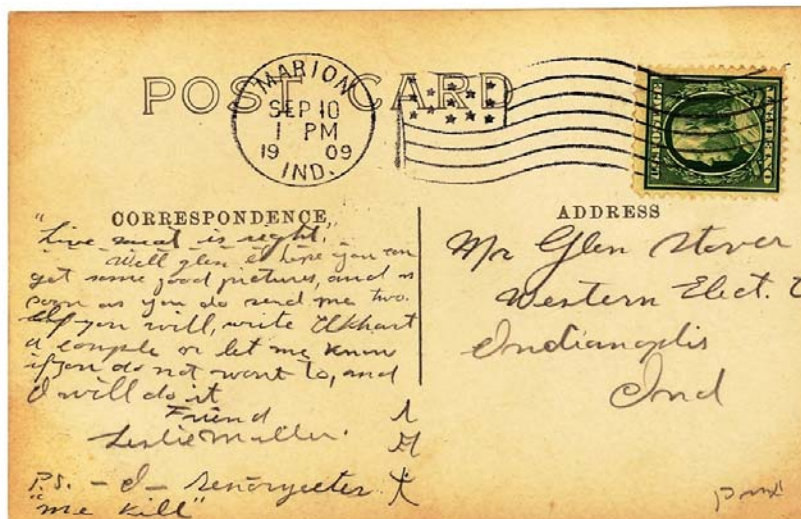 POST CARD
MARION
SEP 10
1 PM
19 09
IND.
U.S. POSTAGE
ONE CENT
CORRESPONDENCE
"Live meat is right."
Well glen I hope you can
get some good pictures, and as
soon as you do send me two.
If you will, write Elkhart
a couple or let me know
if you do not want to, and
I will do it
Friend
Leslie Muller.
P.S. - I -
"me kill"
ADDRESS
Mr Glen Stover
Western Elect.
Indianaplis
Ind